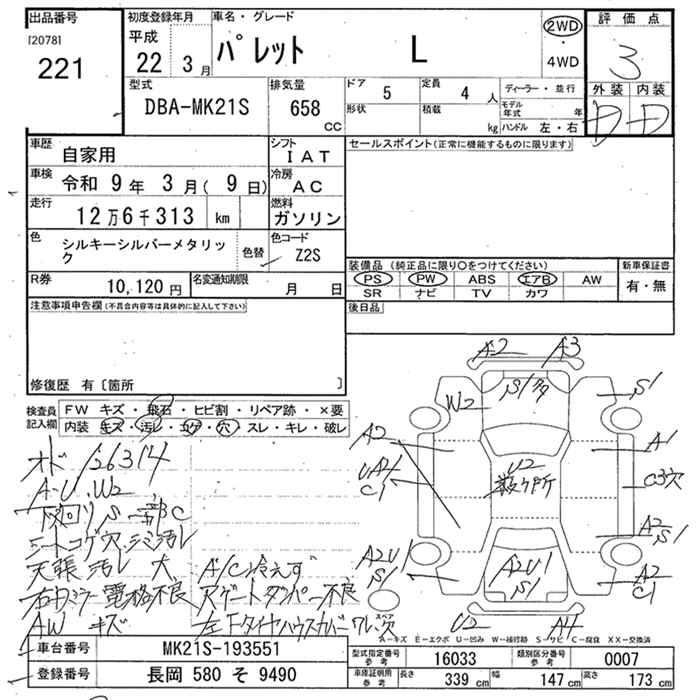 出品番号 初度登録年月 車名・グレード 評価点
[2078]
221
平成
22 3月
パレット L
2WD
・
4WD
3
型式 排気量 ドア 5 定員 4人 ディーラー・並行 外装 内装
DBA-MK21S 658 CC 形状 積載 kg モデル年式 年 D D
ハンドル 左・右
車歴 自家用 シフト IAT セールスポイント(正常に機能するものに限ります)
車検 令和 9年 3月( 9日) 冷房 AC
走行 12万6千313 km 燃料 ガソリン
色 シルキーシルバーメタリック 色替 色コード Z2S
装備品 (純正品に限り○をつけてください) 新車保証書
PS PW ABS エアB AW 有・無
SR ナビ TV カワ
R券 10,120円 名変通知期限 月 日
後日品
注意事項申告欄(不具合内容等は具体的に記入して下さい)
修復歴 有〔箇所 〕
検査員記入欄 FW キズ・飛石・ヒビ割・リペア跡・×要
内装 キズ・汚レ・コゲ・穴・スレ・キレ・破レ
オド 126314
A-U、W2
下回りS 一部C
シートコゲ穴シミ汚レ
天張汚レ 大 A/C冷えず
右ドアミラー電格不良 Rゲートダンパー不良
AW キズ 左FタイヤハウスカバーワレズC
A2 A3
S1
W2 S1
A2 A1
UA4 U2 C3穴
C1 数ヶ所
A2 S1
A2U1 A2U1 A2
S1 S1 C1
スペア
U2 A4
A-キズ E-エクボ U-凹み W-補修跡 S-サビ C-腐食 XX-交換済
車台番号 MK21S-193551
型式指定番号 参考 16033 類別区分番号 参考 0007
登録番号 長岡 580 そ 9490
車庫証明用 参考 長さ 339 cm 幅 147 cm 高さ 173 cm